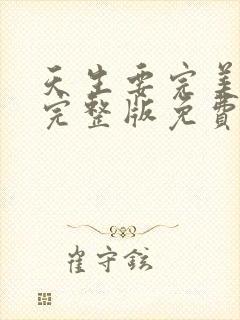 天生要完美
完整版免費
崔守鉉